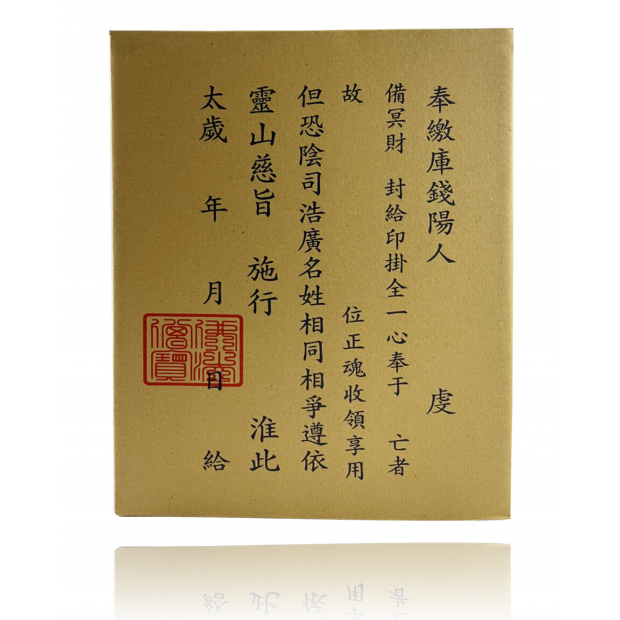 奉繳庫錢陽人 虔
備冥財 封給印掛全一心奉于 亡者
故 位正魂收領享用
但恐陰司浩廣名姓相同相爭遵依
靈山慈旨 施行 淮此
太歲 年 月 日 給
佛法僧寶